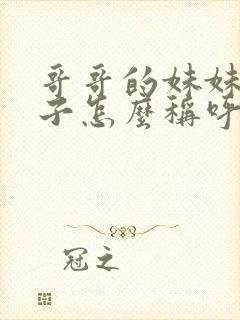 哥哥的妹妹
子怎麼稱呼
冠之